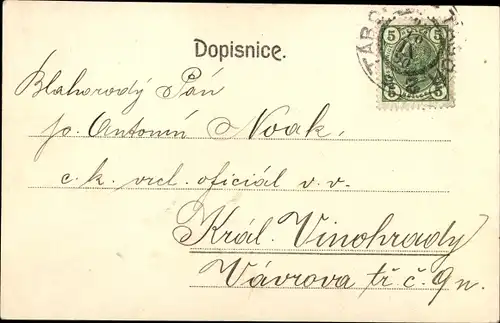 Dopisnice.
5 5
5 5
TÁBOR
Blahorodý Pán
p. Antonín Noak,
c. k. vrch. oficiál v. v.
Král. Vinohrady
Vávrova tř. č. 9 n.